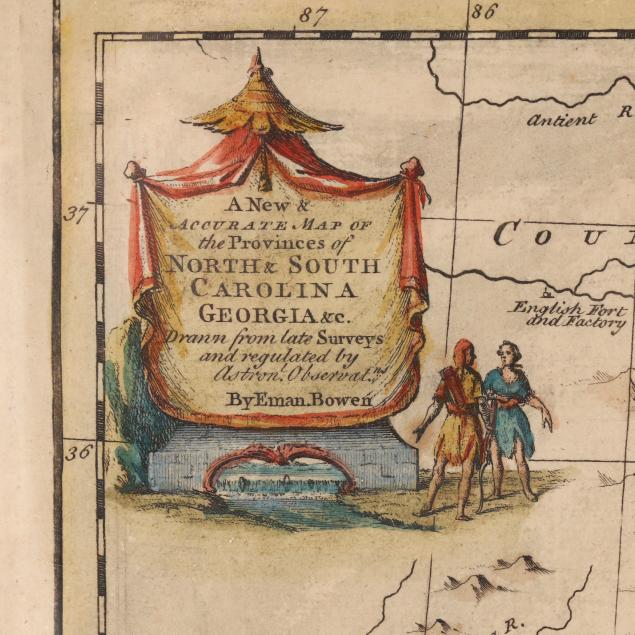 87
86
Antient R
37
A New &
ACCURATE MAP OF
the Provinces of
NORTH & SOUTH
CAROLINA
GEORGIA &c.
Drann from late Surveys
and regulated by
Astronl. Observatns.
By Eman. Bowen
COU
English Fort
and Factory
36
R.